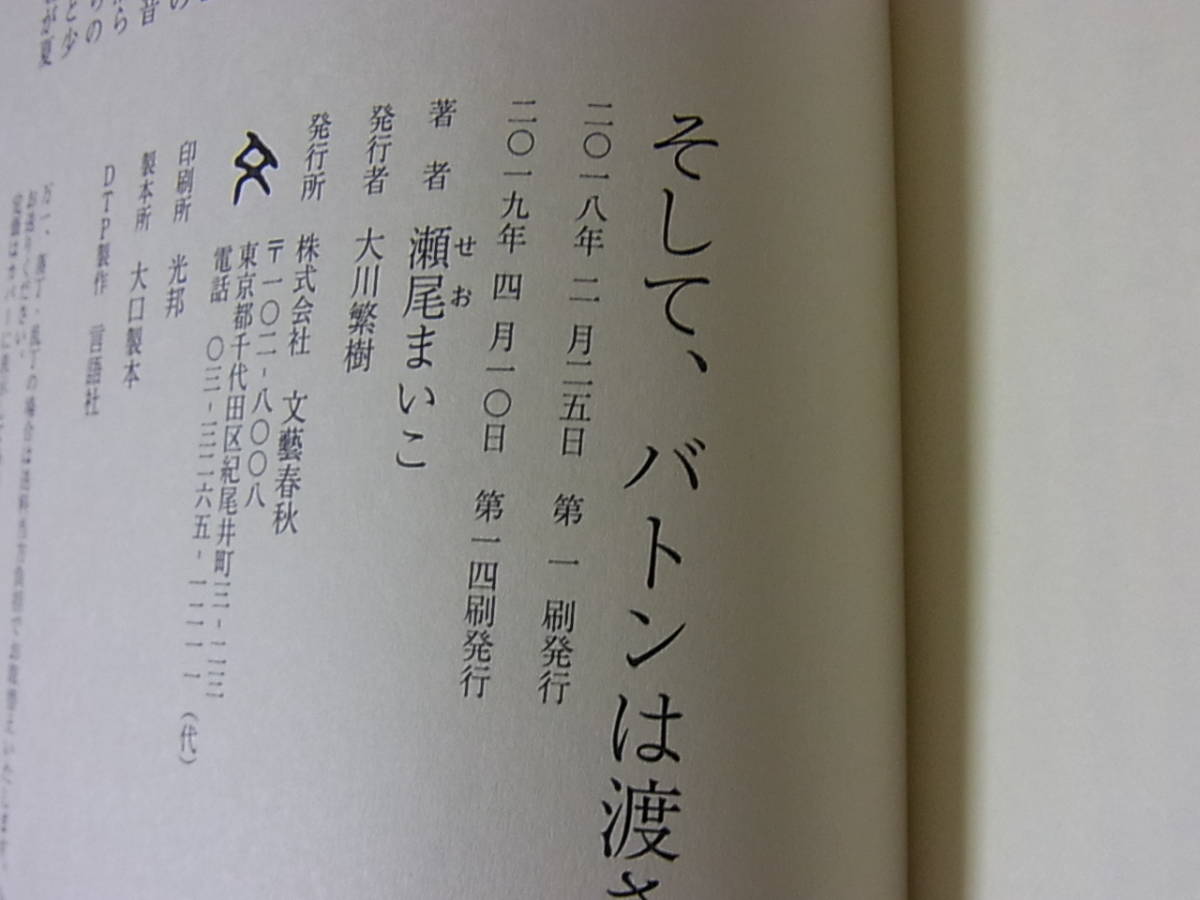 そして、バトンは渡さ
二〇一八年 二 月二五日 第 一 刷発行
二〇一九年 四 月一〇日 第一四刷発行
著 者 瀬尾まいこ
せお
発行者 大川繁樹
発行所 株式会社 文藝春秋
〒一〇二-八〇〇八
東京都千代田区紀尾井町三-二三
電話 〇三-三二六五-一二一一(代)
印刷所 光邦
製本所 大口製本
DTP製作 言語社
万一、落丁・乱丁の場合は送料当方負担でお取替えいたします。
お送りください。
定価はカバーに